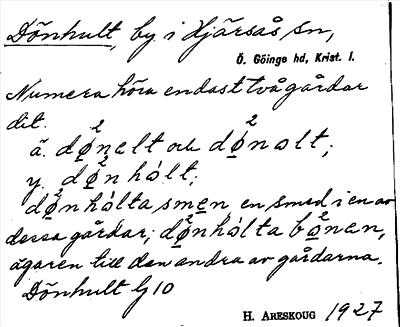 Dönhult, by i Hjärsås sn,
Ö. Göinge hd, Krist. l.
Numera höra endast två gårdar
dit.
ä. dø²nelt och dø²nolt;
y. dø²nhålt;
dø²nhålta smen en smed i en av
dessa gårdar; dø²nhålta bo²nen,
ägaren till den andra av gårdarna.
Dönhult G10
H. ARESKOUG 1927